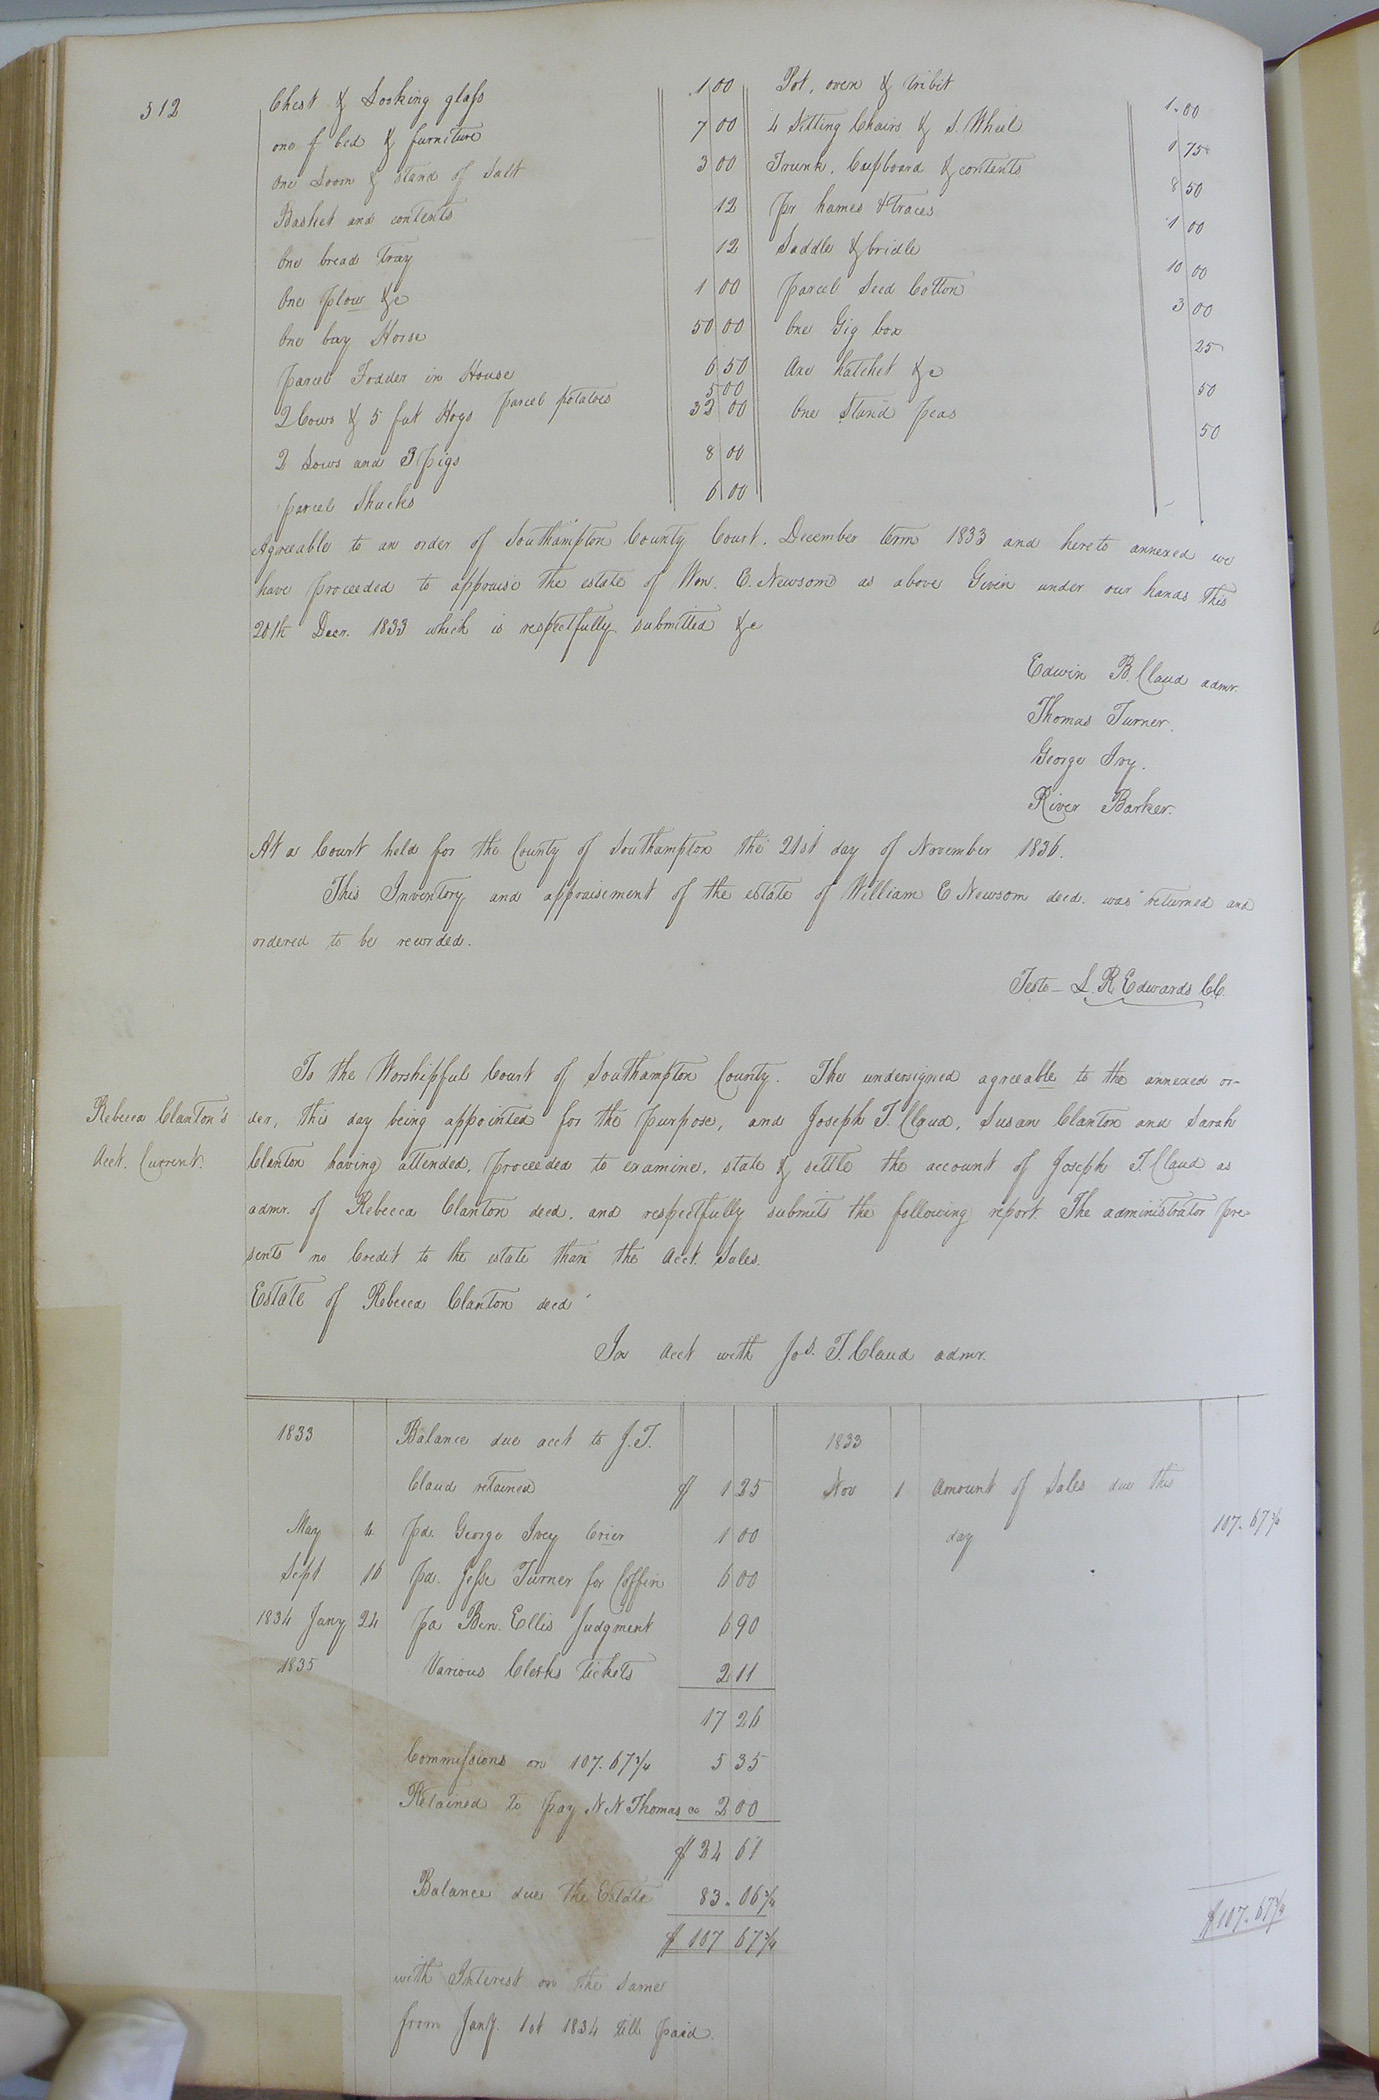 512
Chest & Looking glass 1 00 Pot, oven & tribit 1.00
one f bed & furniture 7 00 4 Sitting Chairs & S. Wheel 1 75
One Loom & stand of Salt 3 00 Trunk, Cupboard & contents 8 50
Basket and contents 12 pr hames & traces 1 00
One bread Tray 12 Saddle & bridle 10 00
One plow &c 1 00 parcel Seed Cotton 3 00
One bay Horse 50 00 One Gig box 25
parcel Fodder in House 6 50 Axe hatchet &c 50
parcel potatoes 5 00
2 Cows & 5 fat Hogs 32 00 One Stand peas 50
2 Sows and 3 pigs 8 00
parcel Shucks 6 00
Agreeable to an order of Southampton County Court, December term 1833 and hereto annexed we
have proceeded to appraise the estate of Wm. E. Newsom as above Given under our hands this
20th Decr. 1833 which is respectfully submitted &c
Edwin B. Claud admr.
Thomas Turner.
George Ivy.
River Barker.
At a Court held for the County of Southampton the 21st day of November 1836.
This Inventory and appraisement of the estate of William E Newsom decd. was returned and
ordered to be recorded.
Teste – L. R. Edwards CC.
Rebecca Clanton's
Acct. Current.
To the Worshipful Court of Southampton County. The undersigned agreeable to the annexed or-
der, this day being appointed for the purpose, and Joseph T. Claud, Susan Clanton and Sarah
Clanton having attended, proceeded to examine, state & settle the account of Joseph T. Claud as
admr. of Rebecca Clanton decd. and respectfully submits the following report. The administrator pre-
sents no Credit to the estate than the acct. Sales.
Estate of Rebecca Clanton decd
In acct with Jos. T. Claud admr.
1833 Balance due acct to J. T. 1833
Claud retained $ 1 25 Nov 1 amount of Sales due this
May 4 pd. George Ivey Crier 1 00 day 107.67 3/4
Sept 16 pd. Jesse Turner for Coffin 6 00
1834 Jany 24 pd Ben. Ellis Judgment 6 90
1835 Various Clerks tickets 2 11
17 26
Commissions on 107.67 3/4 5 35
Retained to pay N N Thomas 2 00
$ 24 61
Balance due the Estate 83.06 3/4
$ 107 67 3/4 $107.67 3/4
with Interest on the same
from Jany. 1st 1834 till paid.